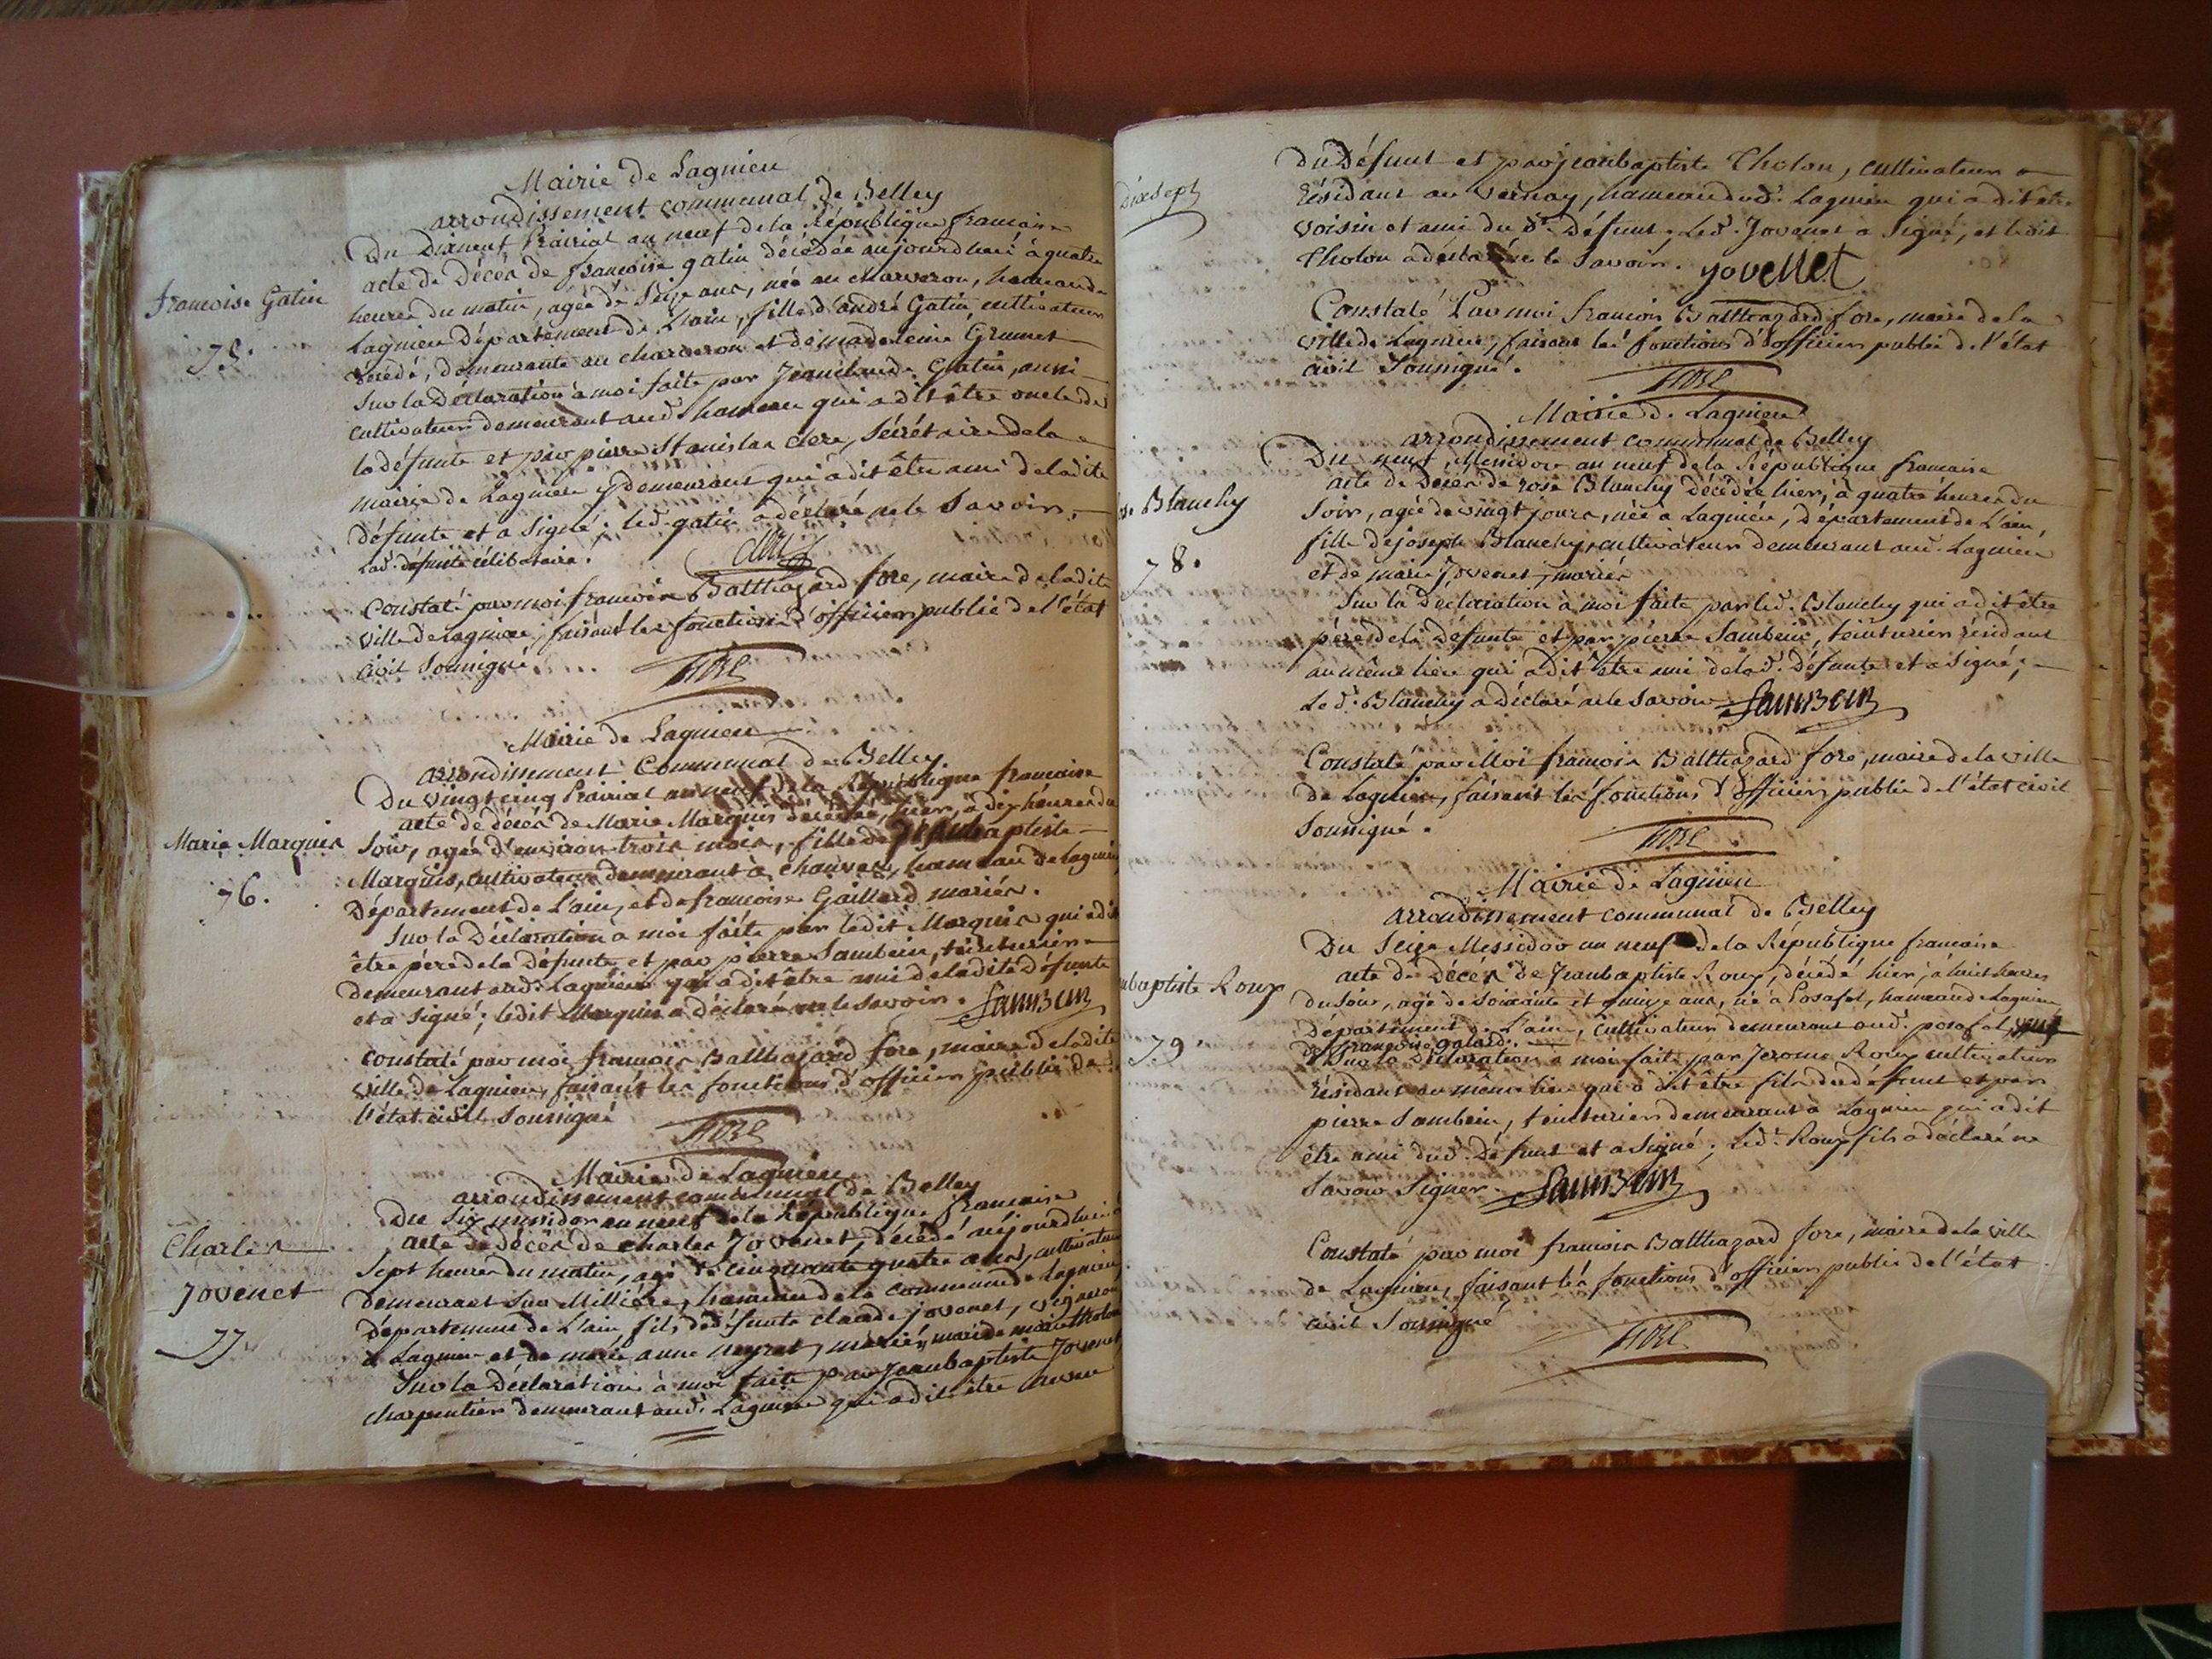 Mairie de Lagnieu
arrondissement communal de Belley
Du Dixneuf Prairial an neuf de la République francaise
acte de Décès de francoise gatin décédée aujourdhui à quatre
heures du matin, agée de Seize ans, née au charveron, hameau de
Lagnieu Département de L'ain, fille d'andré Gatin, cultivateur
décédé, demeurante au charveron et de madeleine Grumet
Francoise Gatin
75.
Sur la Déclaration à moi faite par Jeanclaude Gatin, aussi
cultivateur demeurant aud. hameau qui a dit être oncle de
la défunte et par pierre Stanislas clerc, Sécrétaire de la
mairie de Lagnieu y demeurant qui a dit être ami de ladite
défunte et a Signé; led. gatin a déclaré ne le Savoir.
Lad. défunte célibataire.
Constaté par moi francois Balthazard fore, maire de ladite
ville de Lagnieu, faisant les fonctions d'officier public de l'état
civil Soussigné
fore
Mairie de Lagnieu
arrondissement Communal de Belley.
Du vingt cinq Prairial an neuf de la République francaise
acte de décès de Marie Marquis décédée, hier, à dix heures du
Soir, agée d'environ trois mois, fille de Jeanbaptiste
Marquis, cultivateur demeurant à chauves, hameau de Lagnieu
Département de L'ain, et de francoise Gaillard mariés.
Marie Marquis
76.
Sur la Déclaration a moi faite par ledit Marquis qui a dit
être père de la défunte, et par pierre Sambein, teinturier
demeurant aud. Lagnieu qui a dit être ami de ladite défunte
et a Signé; ledit Marquis a déclaré ne le Savoir. Sambein
Constaté par moi francois Balthazard fore, maire de ladite
ville de Lagnieu, faisant les fonctions d'officier public de
l'état civil Soussigné
fore
Mairie de Lagnieu
arrondissement communal de Belley
Du Six messidor an neuf de la République francaise
acte de décès de charles Jovenet, décédé aujourdhui à
Sept heures du matin, agé de cinquante quatre ans, cultivateur
demeurant Sur Millière, hameau de la commune de Lagnieu,
Département de L'ain, fils de défunts claude jovenet, vigneron
à Lagnieu et de marie anne neyret, mariés, mari de marie tholon
Charles
Jovenet
77
Sur la Déclaration à moi faite par Jeanbaptiste Jovenet,
charpentier demeurant aud. Lagnieu qui a dit être neveu
Dixsept
du Défunt et par jeanbaptiste Tholon, cultivateur
Résidant au Vernay, hameau dud. Lagnieu qui a dit être
voisin et ami du d. Défunt. Led. Jovenet a Signé, et ledit
Tholon a déclaré ne le Savoir. Jovenet
Constaté Par moi francois Balthazard fore, maire de la
ville de Lagnieu, faisant les fonctions d'officier public de l'état
civil Soussigné.
fore
Mairie de Lagnieu
arrondissement communal de Belley
Du neuf Messidor an neuf de la République francaise
acte de Décès de rose Blanchy Décédée hier, à quatre heures du
Soir, agée de vingt jours, née à Lagnieu, Département de L'ain,
fille de joseph Blanchy, cultivateur demeurant aud. Lagnieu
et de marie Jovenet, mariés
Blanchy
78.
Sur la déclaration à moi faite par led. Blanchy qui a dit être
père de la Défunte et par pierre Sambein, teinturier résidant
au même lieu qui a dit être ami de lad. Défunte et a Signé;
Led. Blanchy a Déclaré ne le Savoir Sambein
Constaté par Moi francois Balthazard fore, maire de la ville
de Lagnieu, faisant les fonctions d'officier public de l'état civil
Soussigné.
fore
Mairie de Lagnieu
arrondissement communal de Belley
Du Seize Messidor an neuf de la République francaise
acte de Décès de Jeanbaptiste Roux, décédé hier, à huit heures
du Soir, agé de Soixante et quinze ans, né à Posafol, hameau de Lagnieu
Département de L'ain, Cultivateur demeurant aud. posafol, veuf
de francoise galard.
baptiste Roux
79
Sur la Déclaration à moi faite par Jerome Roux cultivateur
Résidant au même lieu qui a dit être fils du défunt et par
pierre Sambein, teinturier demeurant à Lagnieu qui a dit
être ami dud. Défunt et a Signé; led. Roux fils a déclaré ne
Savoir Signer. Sambein
Constaté par moi francois Balthazard fore, maire de la ville
de Lagnieu, faisant les fonctions d'officier public de l'état
civil Soussigné
fore